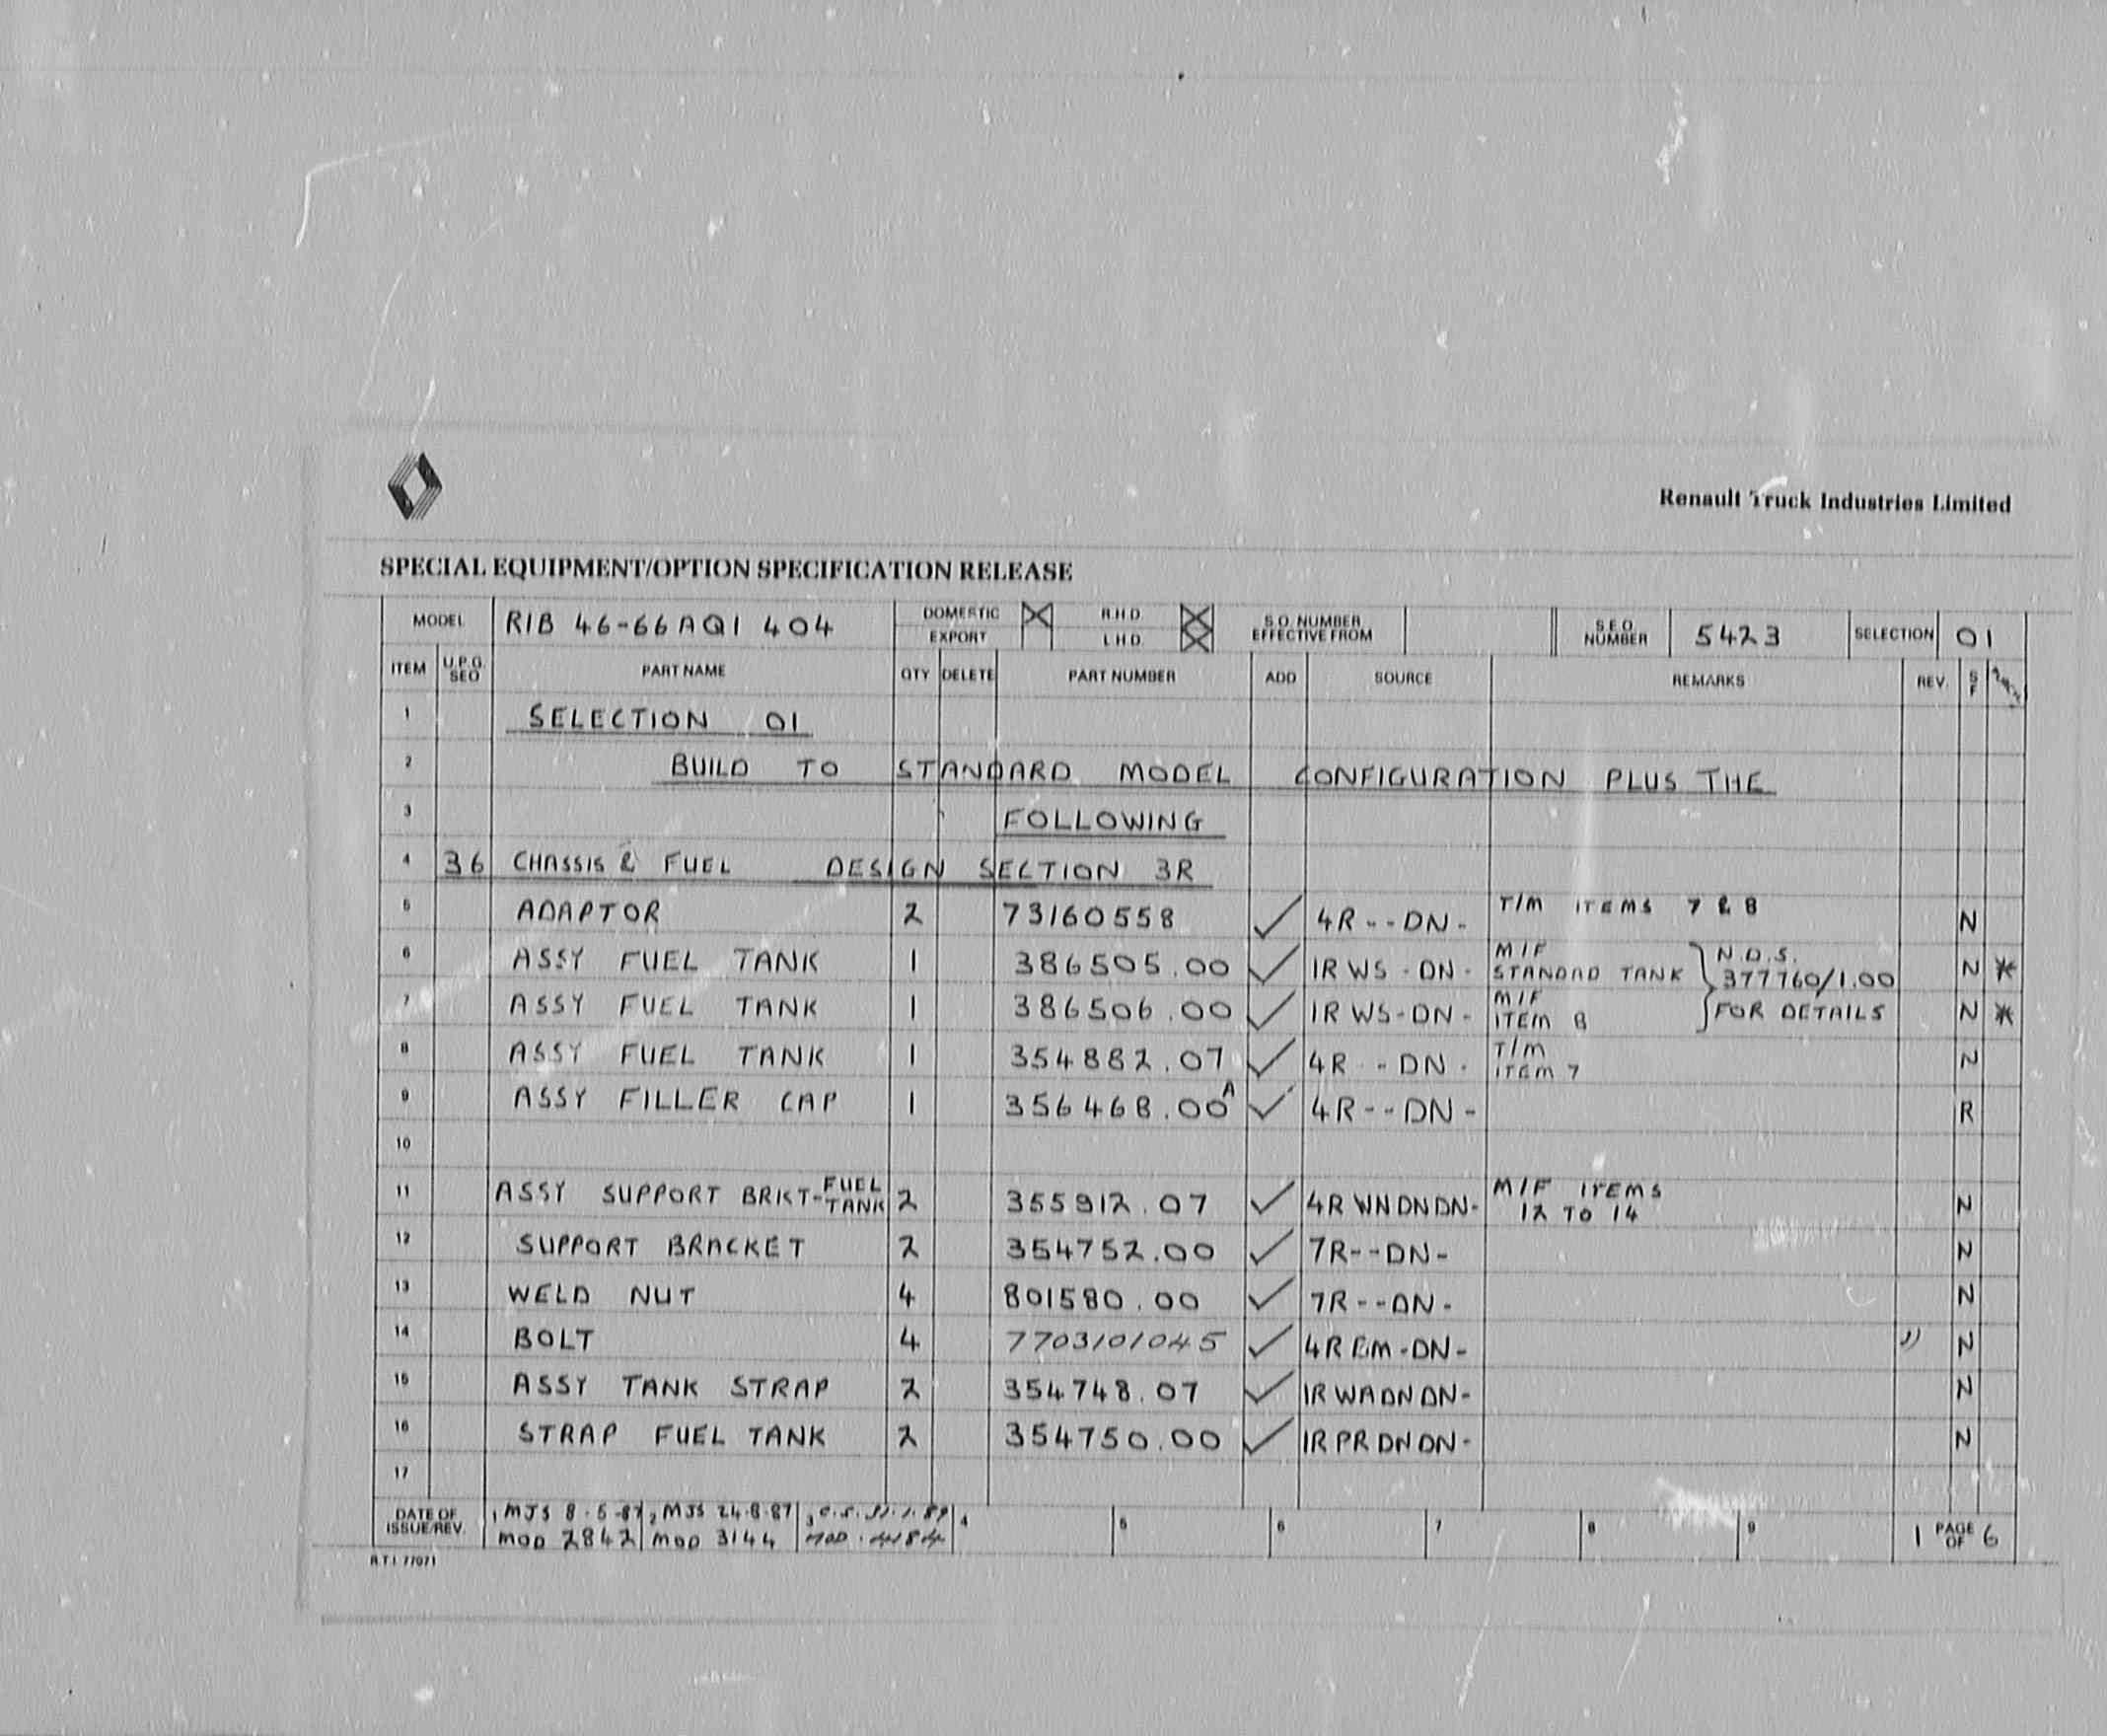 Renault Truck Industries Limited
SPECIAL EQUIPMENT/OPTION SPECIFICATION RELEASE
MODEL RIB 46-66AQ1 404 DOMESTIC R.H.D. S.O. NUMBER EFFECTIVE FROM S.E.O. NUMBER 5423 SELECTION 01
EXPORT L.H.D.
ITEM U.P.G. SEO PART NAME QTY DELETE PART NUMBER ADD SOURCE REMARKS REV. S F
1 SELECTION 01
2 BUILD TO STANDARD MODEL CONFIGURATION PLUS THE
3 FOLLOWING
4 36 CHASSIS & FUEL DESIGN SECTION 3R
5 ADAPTOR 2 73160558 ✓ 4R--DN- T/M ITEMS 7 & 8 N
6 ASSY FUEL TANK 1 386505.00 ✓ 1RWS-DN- M/F STANDAD TANK N.D.S. 377760/1.00 N *
7 ASSY FUEL TANK 1 386506.00 ✓ 1RWS-DN- M/F ITEM 8 FOR DETAILS N *
8 ASSY FUEL TANK 1 354882.07 ✓ 4R--DN- T/M ITEM 7 N
9 ASSY FILLER CAP 1 356468.00A ✓ 4R--DN- R
10
11 ASSY SUPPORT BRKT-FUEL TANK 2 355912.07 ✓ 4RWNDNDN- M/F ITEMS 12 TO 14 N
12 SUPPORT BRACKET 2 354752.00 ✓ 7R--DN- N
13 WELD NUT 4 801580.00 ✓ 7R--DN- N
14 BOLT 4 7703101045 ✓ 4REM-DN- N
15 ASSY TANK STRAP 2 354748.07 ✓ 1RWADNDN- N
16 STRAP FUEL TANK 2 354750.00 ✓ 1RPRDNDN- N
17
DATE OF ISSUE/REV. 1 MJS 8-5-87 2 MJS 24-8-87 3 4 5 6 7 8 9 1 PAGE OF 6
MOD 2842 MOD 3144 MOD. 4184
R.T.I. 77071